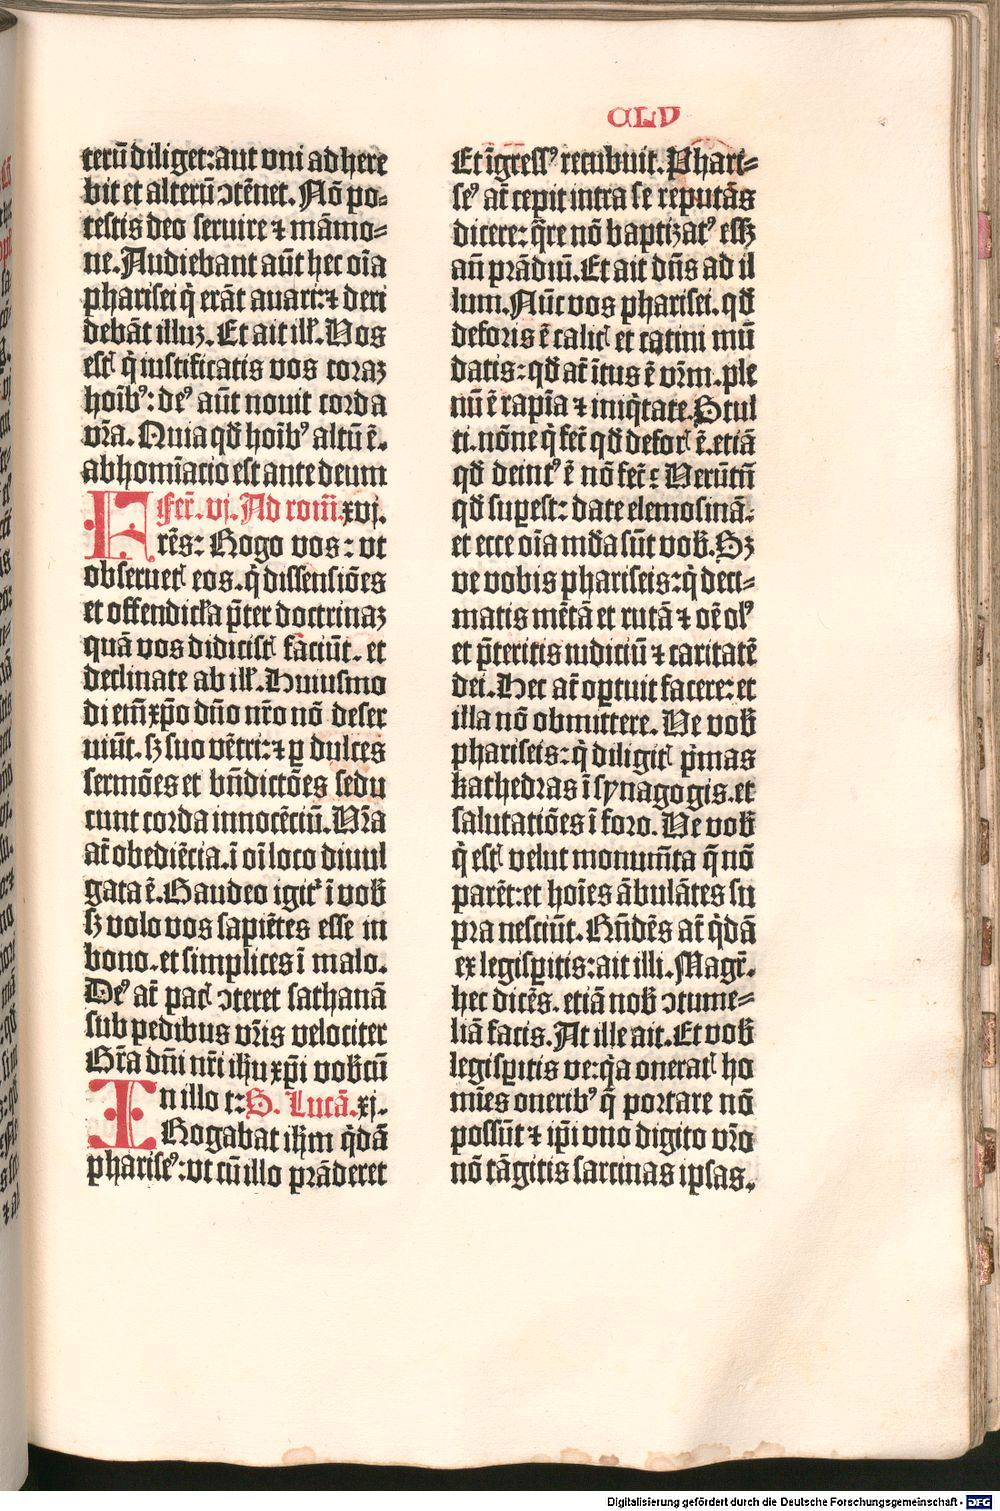 CLV
terũ diliget: aut vni adhere
bit et alterũ ꝯtẽnet. Nõ po⸗
testis deo seruire ⁊ mãmo⸗
ne. Audiebant aũt hec oĩa
pharisei q̃ erãt auari: ⁊ deri
debãt illuꝫ. Et ait ill'. Vos
estꝭ q̃ iustificatis vos coraꝫ
hoĩbꝰ: deꝰ aũt nouit corda
vr̃a. Quia qđ hoĩbꝰ altũ ẽ.
abhomĩacio est ante deum
Fer̃. vj. Ad rom̃. xvj.
Frẽs: Rogo vos: vt
obseruetꝭ eos. q̃ dissensiões
et offendicl'a p̃ter doctrinaꝫ
quã vos didicistꝭ faciũt. et
declinate ab ill'. Huiusmo
di em̃ xp̃o dño nr̃o nõ deser
uiũt. sꝫ suo vẽtri: ⁊ ꝑ dulces
sermões et bñdictões sedu
cunt corda innocẽciũ. Vr̃a
at̃ obediẽcia. ĩ oĩ loco diuul
gata ẽ. Gaudeo igit᷑ ĩ vob̃
sꝫ volo vos sapiẽtes esse in
bono. et simplices ĩ malo.
Deꝰ at̃ pacꝭ ꝯteret sathanã
sub pedibus vr̃is velociter
Gr̃a dñi nr̃i ihu xp̃i vob̃cũ
In illo t: S. Lucã. xj.
Rogabat ihm q̃dã
phariseꝰ: vt cũ illo prãderet
Et ĩgressꝰ recubuit. Phari⸗
seꝰ at̃ cepit intra se reputãs
dicere: q̃re nõ baptizatꝰ essꝫ
añ prãdiũ. Et ait dñs ad il
lum. Nũc vos pharisei. qđ
deforis ẽ calicꝭ et catini mũ
datis: qđ at̃ ĩtus ẽ vr̃m. ple
nũ ẽ rapĩa ⁊ iniq̃tate. Stul
ti. nõne q̃ fec̃ qđ deforꝭ ẽ. etiã
qđ deintꝰ ẽ nõ fec̃: Verũtñ
qđ suꝑest: date elemosinã:
et ecce oĩa mũda sũt vob̃. Sꝫ
ve vobis phariseis: q̃ deci⸗
matis mẽtã et rutã ⁊ oẽ olꝰ
et p̃teritis iudiciũ ⁊ caritatẽ
dei. Hec at̃ oꝑtuit facere: et
illa nõ obmittere. Ve vob̃
phariseis: q̃ diligitꝭ p̃mas
kathedras ĩ synagogis. et
salutatiões ĩ foro. Ve vob̃
q̃ estꝭ velut monum̃ta q̃ nõ
parẽt: et hoĩes ãbulãtes su
pra nesciũt. Rñdẽs at̃ q̃dã
ex legisꝑitis: ait illi. Magr̃.
hec dicẽs. etiã nob̃ ꝯtume⸗
liã facis. At ille ait. Et vob̃
legisꝑitis ve: q̃a oneratꝭ ho
mĩes oneribꝰ q̃ portare nõ
possũt ⁊ ip̃i vno digito vr̃o
nõ tãgitis sarcinas ipsas.
Digitalisierung gefördert durch die Deutsche Forschungsgemeinschaft - DFG